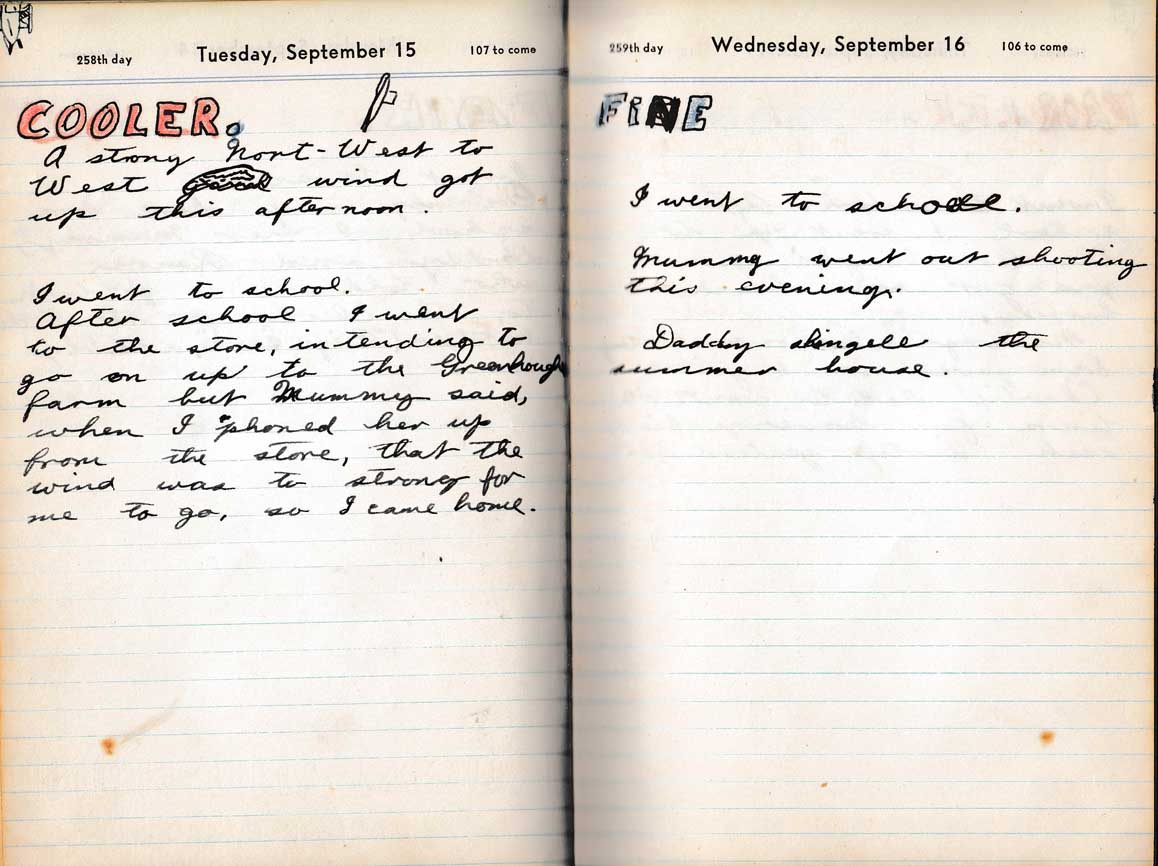 258th day Tuesday, September 15 107 to come
COOLER.
A strong Nort-West to
West wind got
up this afternoon.
I went to school.
After school I went
to the store, intending to
go on up to the Greenhough
farm but Mummy said,
when I 'phoned her up
from the store, that the
wind was to strong for
me to go, so I came home.
259th day Wednesday, September 16 106 to come
FINE
I went to school.
Mummy went out shooting
this evening.
Daddy shingell the
summer house.